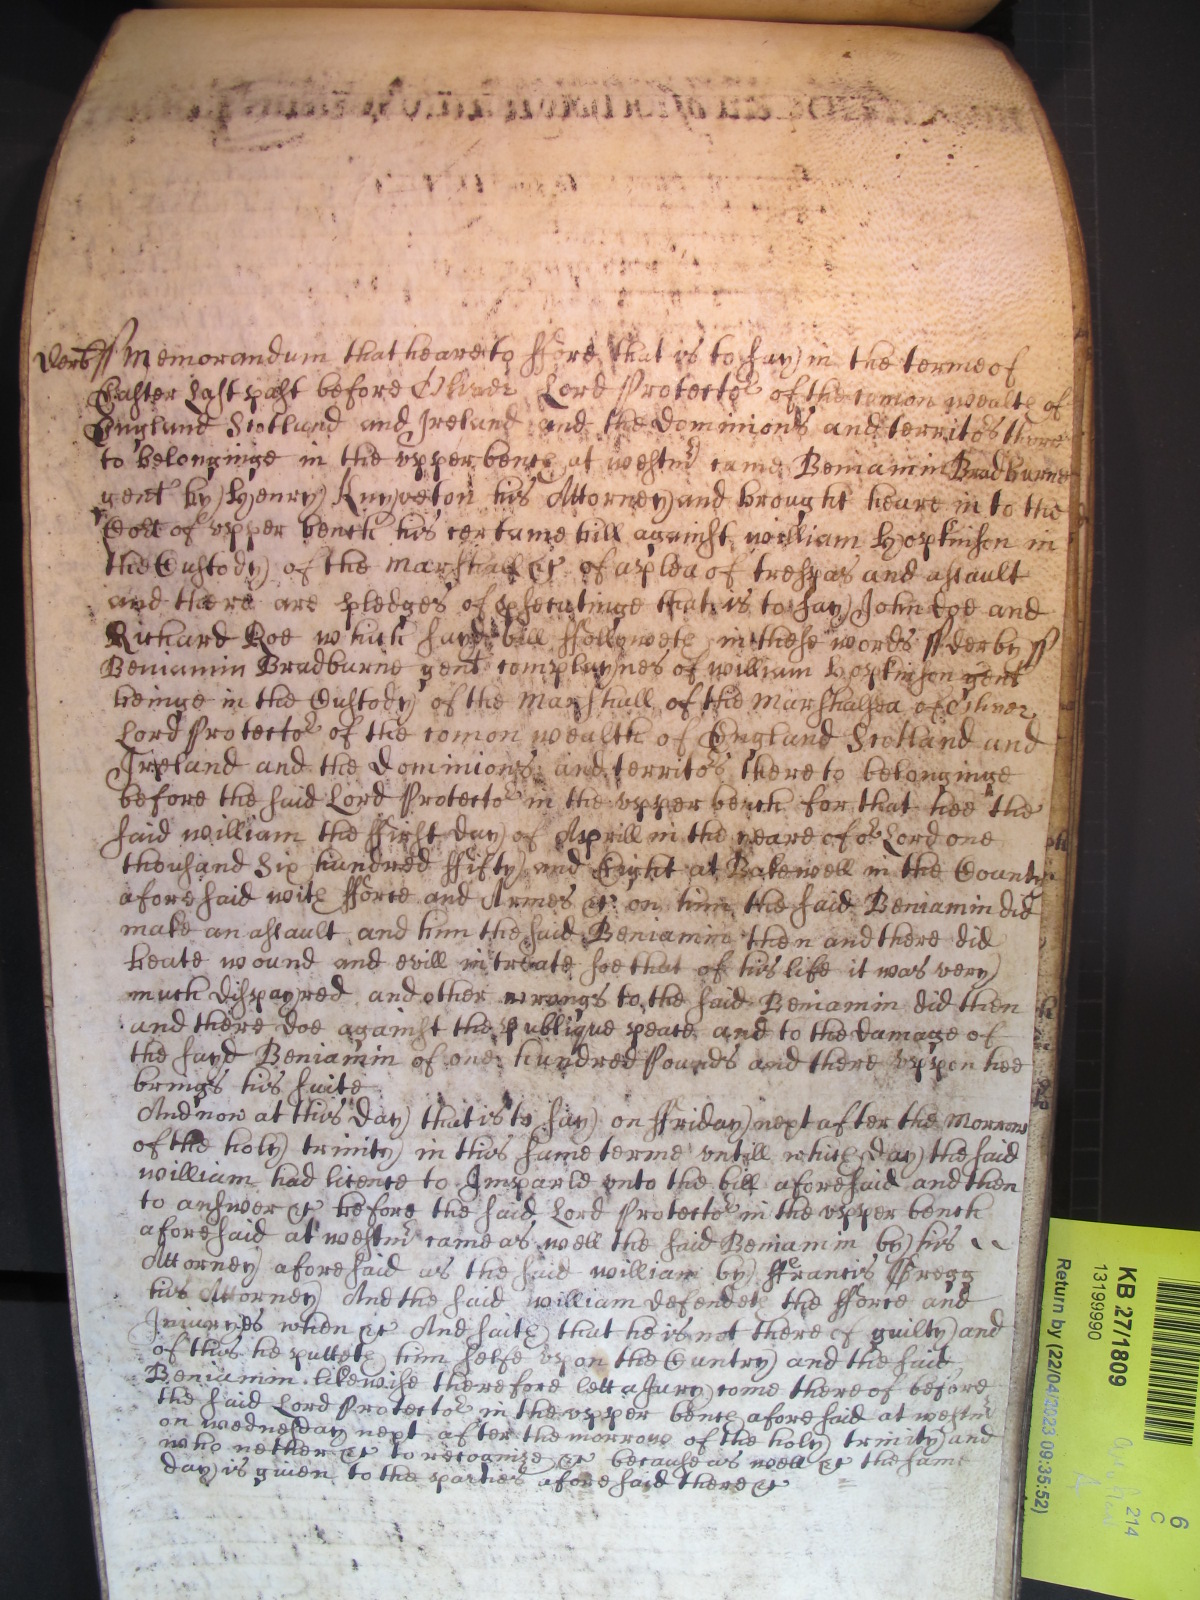 Derb ss Memorandum that heareto ffore that is to say in the terme of
Easter last past before Oliver Lord Protector of the comon wealth of
England Scotland and Ireland and the dominions and territors there
to belonginge in the vpper bench at westm came Beniamin Bradburne
gent by Henry Knyveton his Attorney and brought heare in to the
Cort of vpper bench his certaine bill against william Hopkinson in
the Custody of the marshall &c of a plea of trespas and assault
and there are pledges of psecutinge that is to say John doe and
Richard Roe which sayd bill ffolloweth in these words ss derby ss
Beniamin Bradburne gent complaynes of william Hopkinson gent
beinge in the Custody of the marshall of the marshalsea of Oliver
Lord Protector of the comon wealth of England Scotland and
Ireland and the dominions and territors there to belonginge
before the said Lord Protector in the vpper bench for that hee the
said william the ffirst day of Aprill in the yeare of or Lord one
thousand Six hundred ffifty and Eight at Bakewell in the County
aforesaid with fforce and Armes &c on him the said Beniamin did
make an assault and him the said Beniamin then and there did
beate wound and evill intreate soe that of his life it was very
much dispayred and other wrongs to the said Beniamin did then
and there doe against the publique peace and to the damage of
the sayd Beniamin of one hundred Pounds and there vppon hee
brings his suite
And now at this day that is to say on ffriday next after the morrow
of the holy trinity in this same terme vntill which day the said
william had licence to Imparle vnto the bill aforesaid and then
to answer &c before the said Lord Protector in the vpper bench
aforesaid at westm came as well the said Beniamin by his
Attorney aforesaid as the said william by ffrancis Gregg
his Attorney And the said william defendeth the fforce and
Iniuryes when &c And saith that he is not there of guilty and
of this he putteth him selfe vpon the Cuntry and the said
Beniamin likewise therefore lett a Jury come there of before
the said Lord Protector in the vpper bench aforesaid at westm
on wednesday next after the morrow of the holy trinity and
who nether &c to recognize &c because as well &c the same
day is given to the parties aforesaid there &c
KB 27/1809
13199990
Return by (22/04/2023 09:35:52)
6
C
214